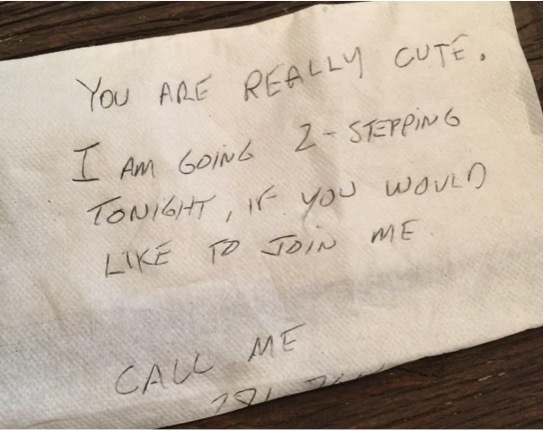 YOU ARE REALLY CUTE.
I AM GOING 2-STEPPING
TONIGHT, IF YOU WOULD
LIKE TO JOIN ME.
CALL ME